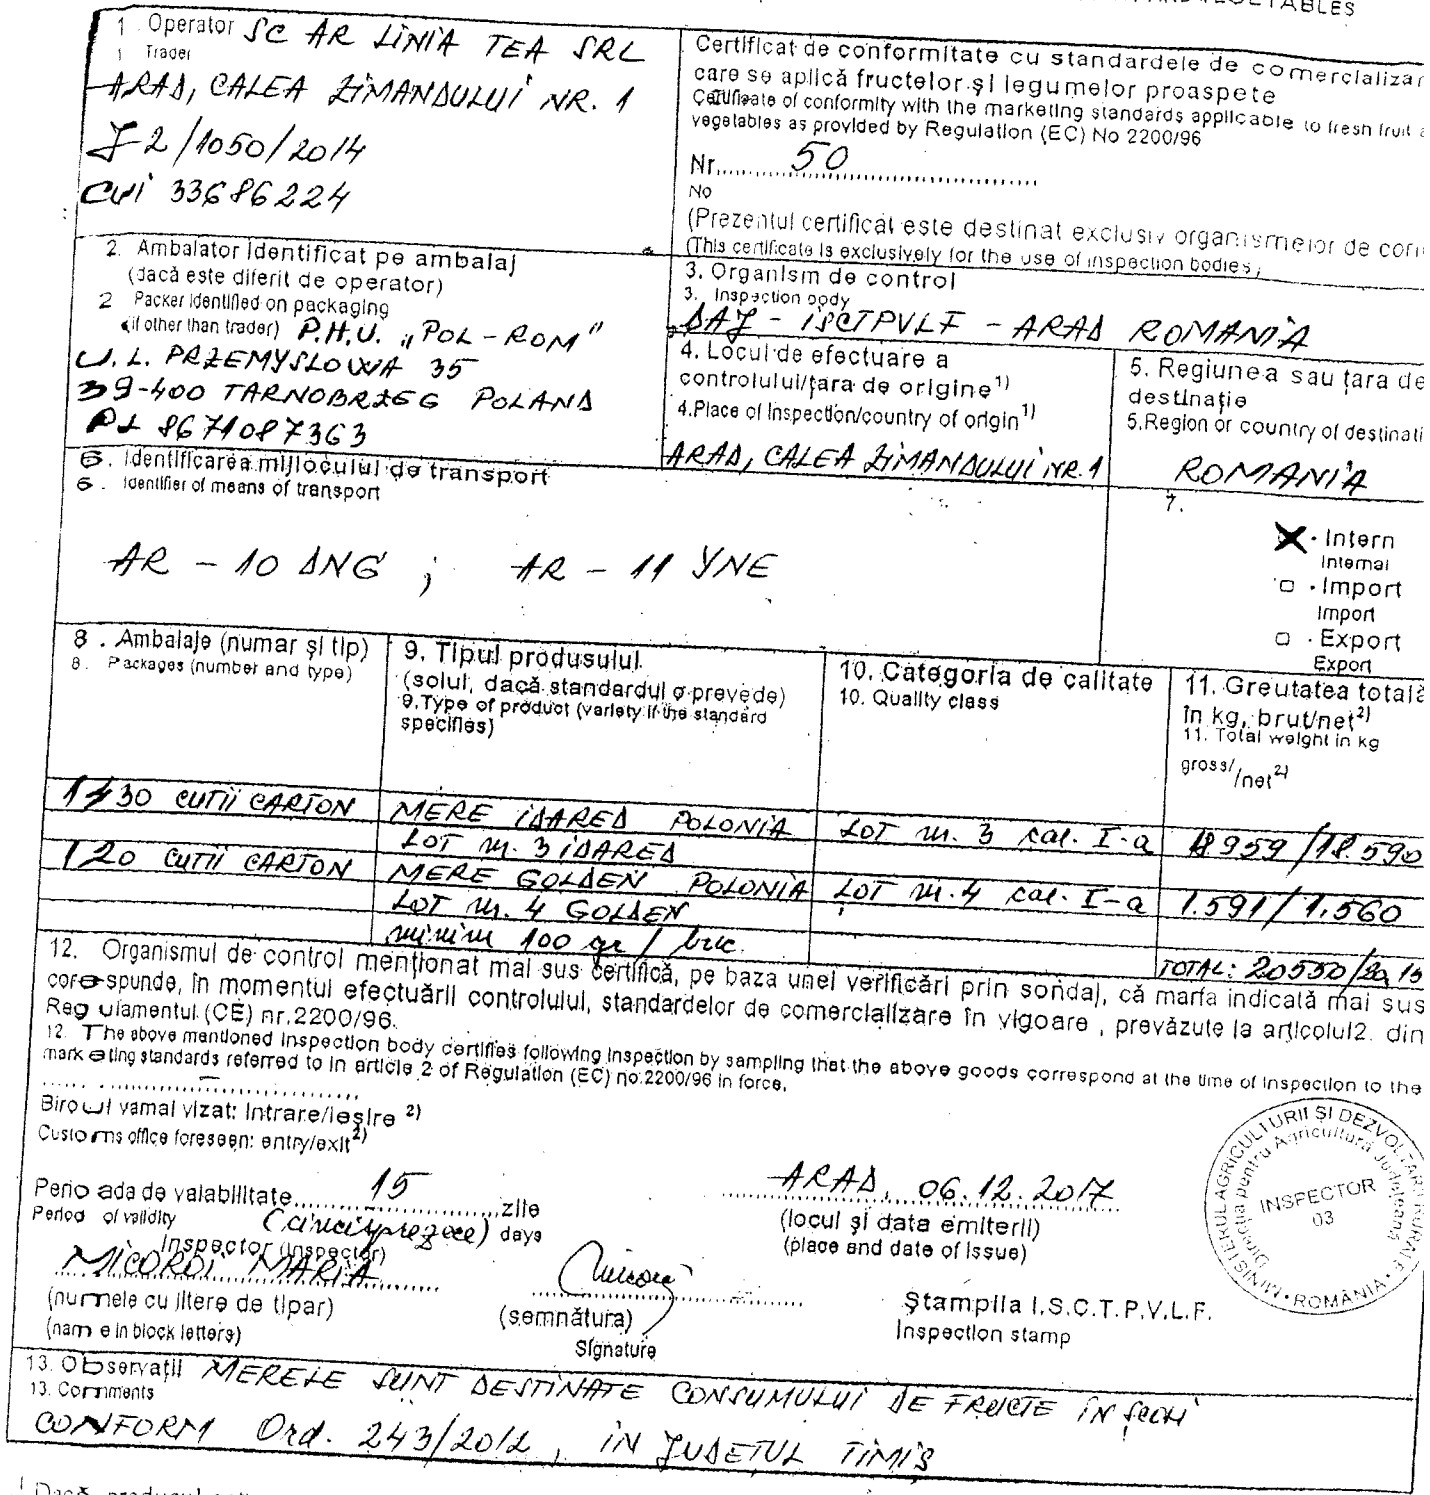 TABLES
1. Operator SC AR LINIA TEA SRL
1 Trader
ARAD, CALEA ZIMANDULUI NR. 1
J2/1050/2014
CUI 33686224
Certificat de conformitate cu standardele de comercializar
care se aplică fructelor și legumelor proaspete
Certificate of conformity with the marketing standards applicable to fresh fruit a
vegetables as provided by Regulation (EC) No 2200/96
Nr. 50
No
(Prezentul certificat este destinat exclusiv organismelor de con
(This certificate is exclusively for the use of inspection bodies)
2. Ambalator identificat pe ambalaj
(dacă este diferit de operator)
2 Packer identified on packaging
(if other than trader) P.H.U. „POL-ROM"
U.L. PRZEMYSLOWA 35
39-400 TARNOBRZEG POLAND
PL 8671087363
3. Organism de control
3. Inspection body
DAJ - ISCTPVLF - ARAD ROMANIA
4. Locul de efectuare a
controlului/țara de origine 1)
4.Place of Inspection/country of origin 1)
ARAD, CALEA ZIMANDULUI NR. 1
5. Regiunea sau țara de
destinație
5.Region or country of destinati
ROMANIA
6. Identificarea mijlocului de transport
6. Identifier of means of transport
AR - 10 DNG ; AR - 11 YNE
7.
X - Intern
Internal
□ - Import
Import
□ - Export
Export
8. Ambalaje (numar și tip)
8. Packages (number and type)
9. Tipul produsului
(soiul, dacă standardul o prevede)
9.Type of product (variety if the standard
specifies)
10. Categoria de calitate
10. Quality class
11. Greutatea totală
în kg, brut/net 2)
11. Total weight in kg
gross/ /net 2)
1430 CUTII CARTON MERE IDARED POLONIA LOT nr. 3 cal. I-a 18.959/18.590
LOT nr. 3 IDARED
120 CUTII CARTON MERE GOLDEN POLONIA LOT nr. 4 cal. I-a 1.591/1.560
LOT nr. 4 GOLDEN
minim 100 gr/buc.
TOTAL: 20550/20,15
12. Organismul de control menționat mai sus certifică, pe baza unei verificări prin sondaj, că marfa indicată mai sus
corespunde, în momentul efectuării controlului, standardelor de comercializare în vigoare , prevăzute la articolul2. din
Regulamentul (CE) nr.2200/96.
12. The above mentioned inspection body certifies following inspection by sampling that the above goods correspond at the time of inspection to the
marketing standards referred to in article 2 of Regulation (EC) no.2200/96 in force.
Biroul vamal vizat: Intrare/ieșire 2)
Customs office foreseen: entry/exit 2)
Perioada de valabilitate 15 zile
Period of validity (cincisprezece) days
ARAD, 06.12.2017
(locul și data emiterii)
(place and date of issue)
Inspector (inspector)
MICOROI MARIA
(numele cu litere de tipar)
(name in block letters)
(semnătura)
Signature
Ștampila I.S.C.T.P.V.L.F.
Inspection stamp
MINISTERUL AGRICULTURII ȘI DEZVOLTĂRII RURALE • ROMÂNIA •
Direcția pentru Agricultură Județeană
INSPECTOR
03
13. Observații MERELE SUNT DESTINATE CONSUMULUI DE FRUCTE IN ȘCOLI
13. Comments
CONFORM Ord. 243/2012, IN JUDEȚUL TIMIȘ